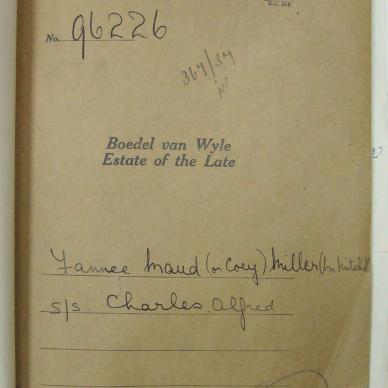 No. 96226
367/37
Boedel van Wyle
Estate of the Late
Fannee Maud (or Coey) Miller (bn Mitchell
s/s. Charles Alfred